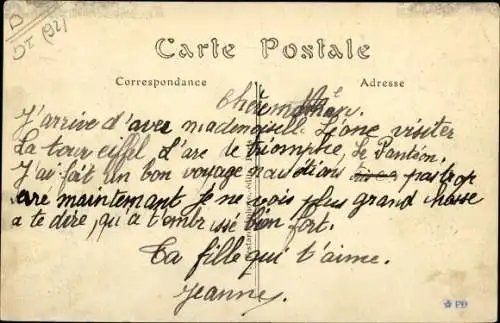 D
DI (92)
Carte Postale
Correspondance
Adresse
Chère maman.
J'arrive d'avec mademoiselle Lione visiter
La tour eiffel L'arc de triomphe, Le Pantéon,
J'ai fait un bon voyage nous étions pas trop
aré maintenant je ne vois plus grand chose
a te dire, qu'a t'embrassé bien fort.
Ta fille qui t'aime.
Jeanne.
PD